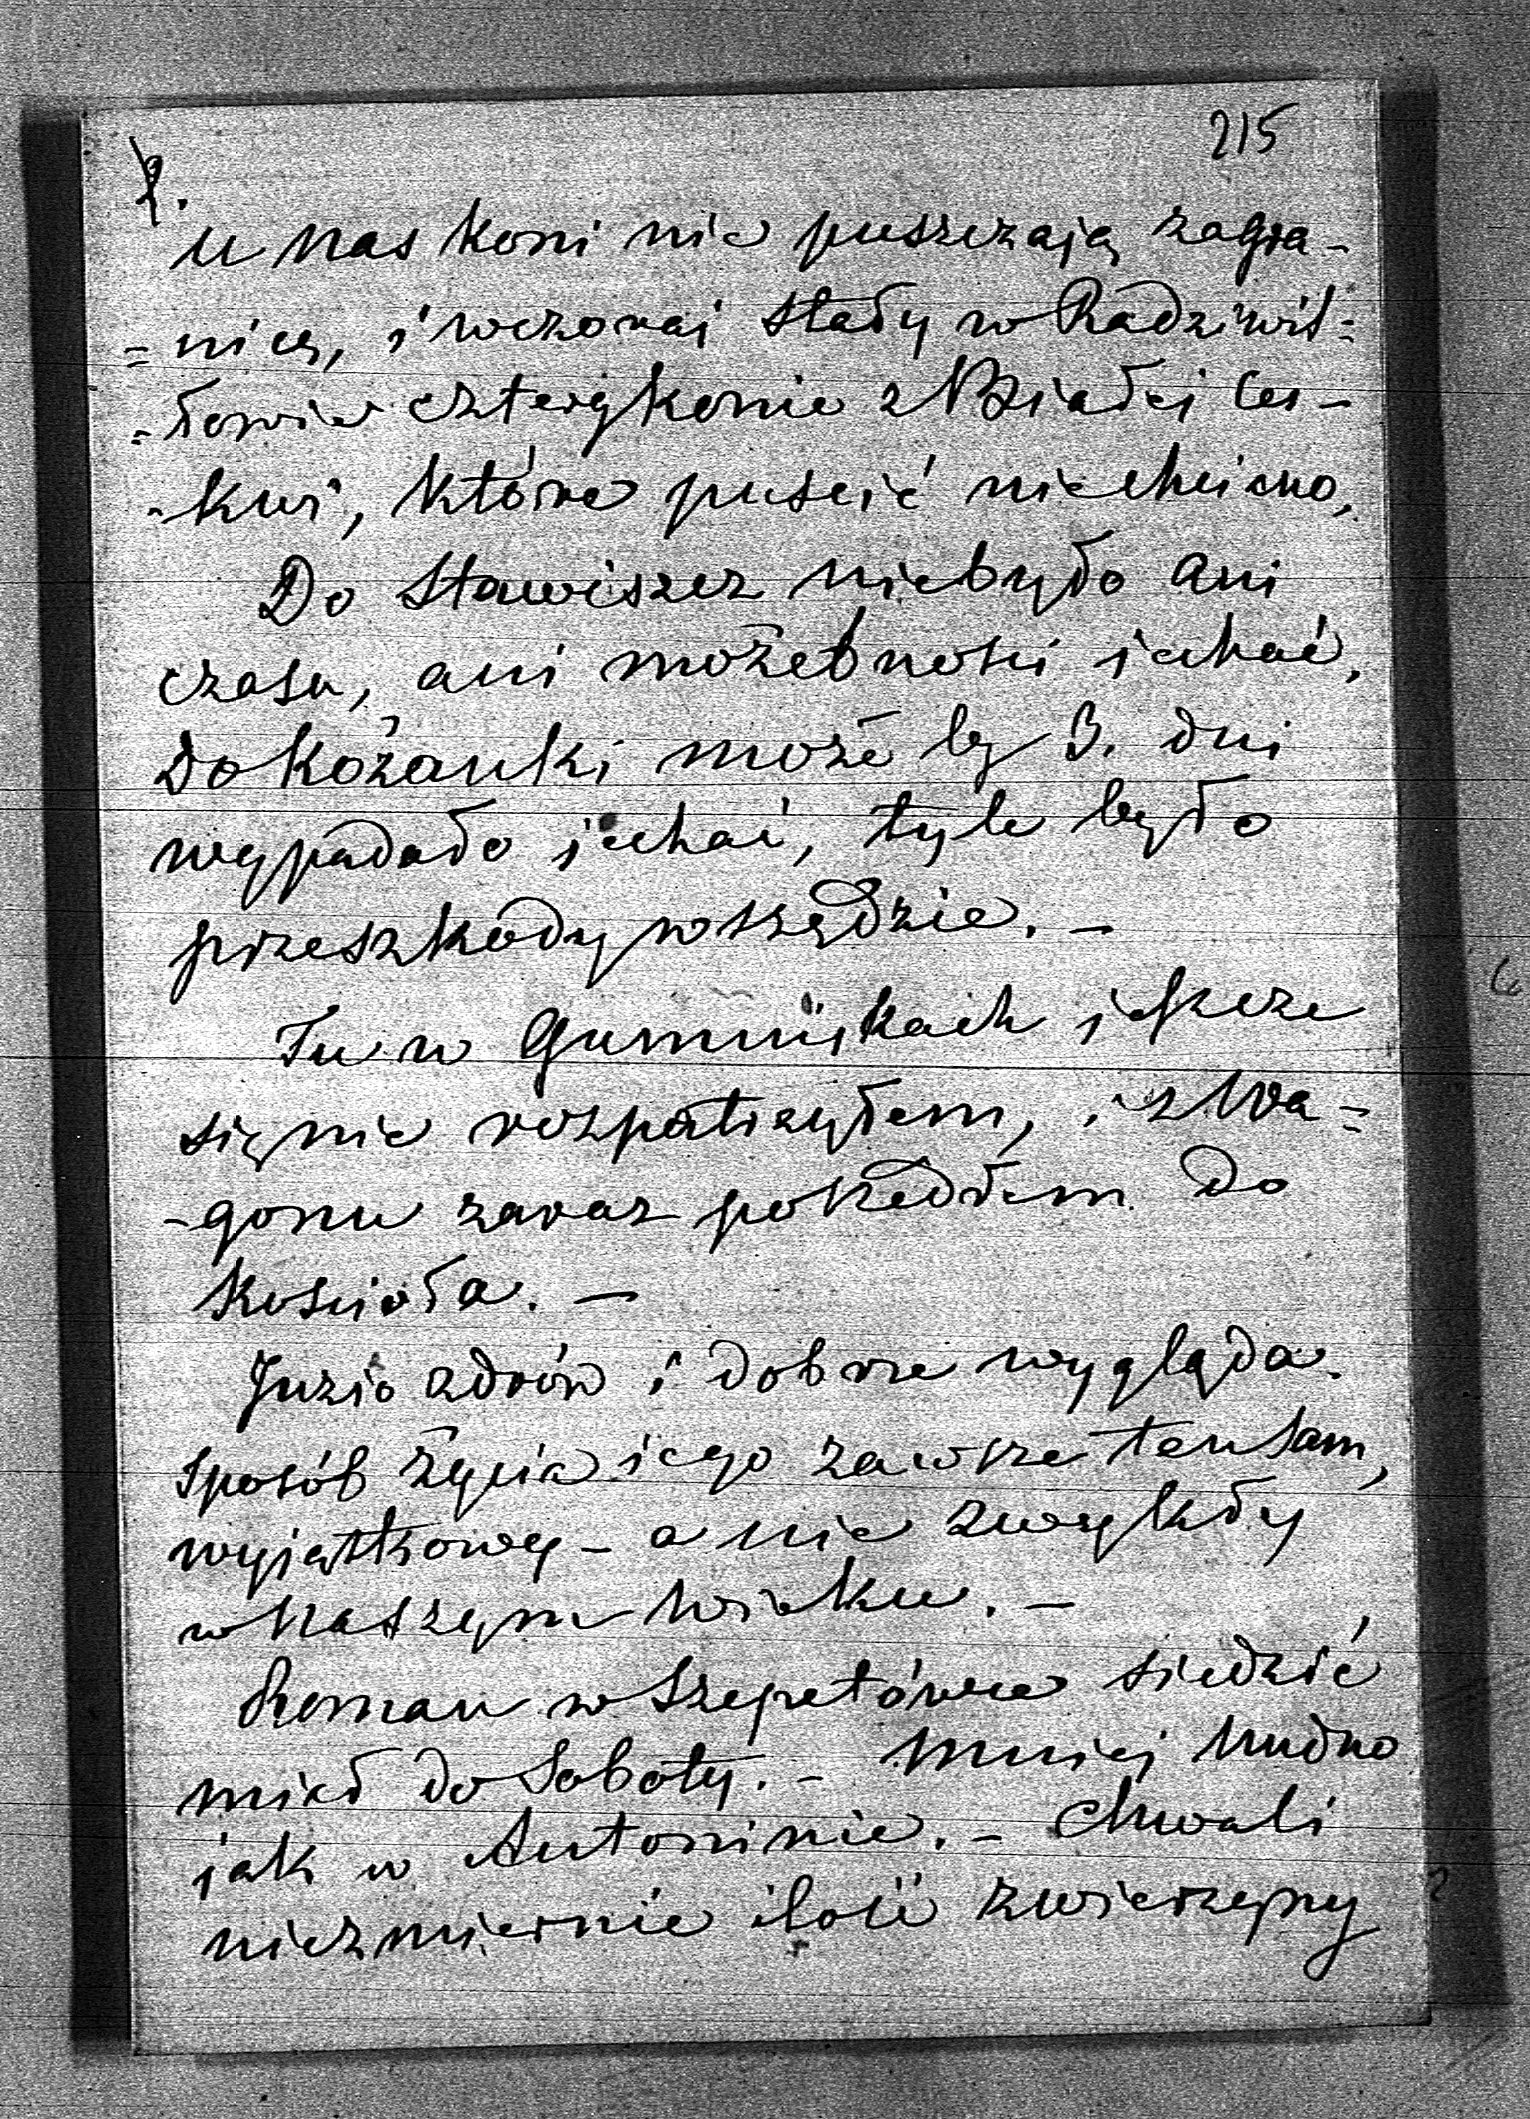 215
2.
u nas koni nie puszczają zagra-
=nicę, i wczoraj stały w Radziwił=
=łowie cztery konie z Białej Cer-
-kwi, które puścić niechciano.
Do Stawiszcz niebyło ani
czasu, ani możebności jechać,
do Kożanki może by 3. dni
wypadało jechać, tyle było
przeszkody wszędzie. –
Tu w Gumniskach jeszcze
się nie rozpatrzyłem, i z Wa=
-gonu zaraz poszedłem do
Kościoła. –
Juzio zdrów i dobrze wygląda.
Sposób życia jego zawsze ten sam,
wyjątkowy – a nie zwykły
w naszym wieku. –
Roman w Szepetówce siedzieć
miał do Soboty. – Mniej nudno
jak w Antoninie. – Chwali
niezmiernie ilość zwierzyny